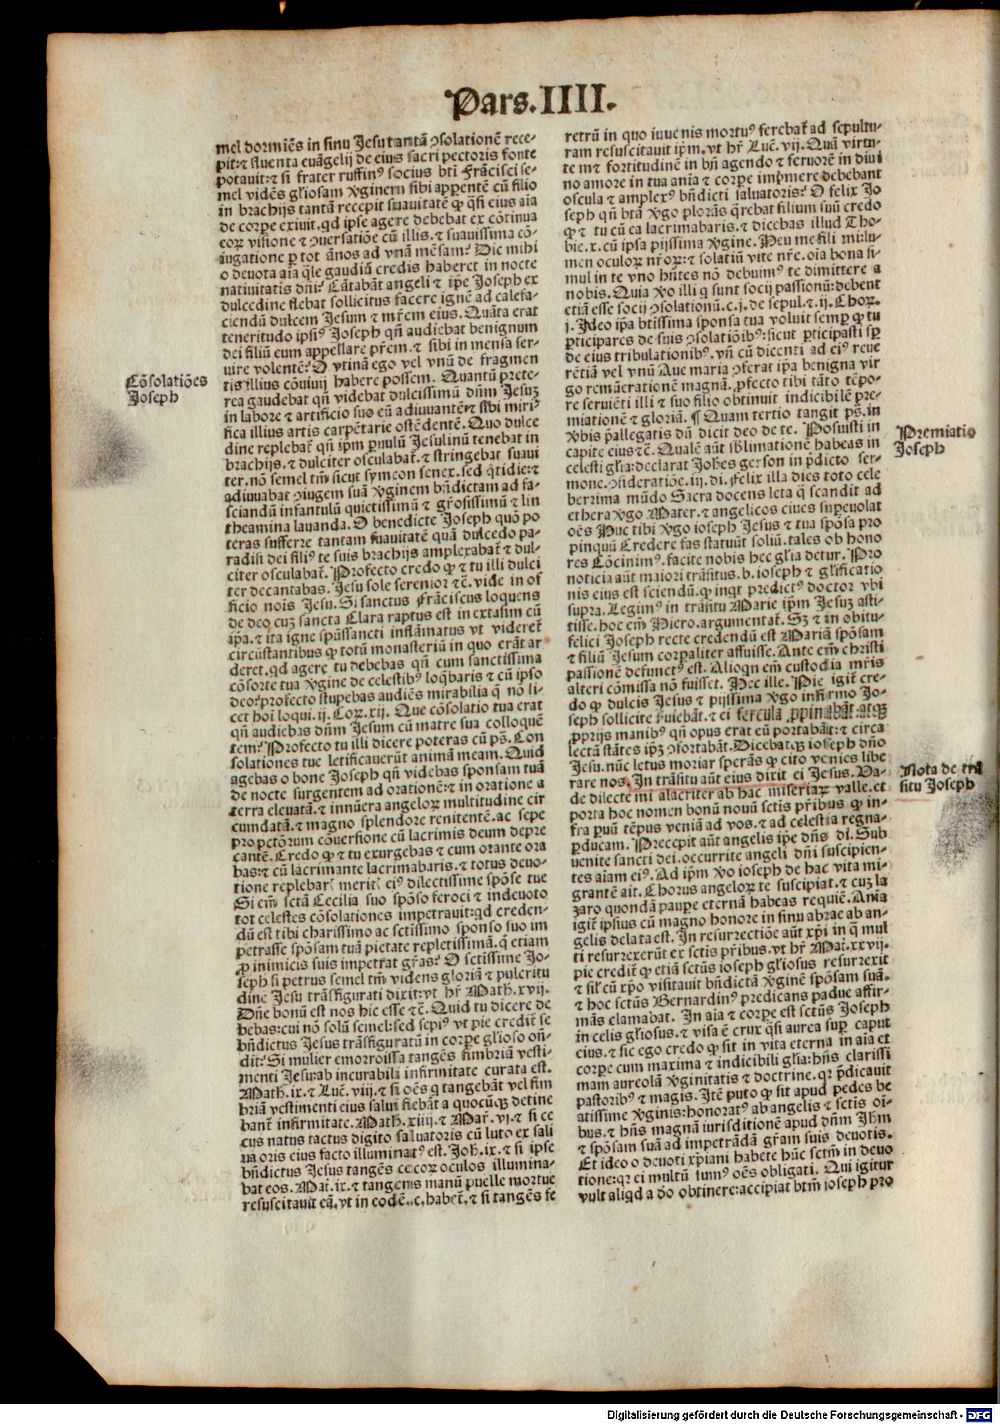 Pars.IIII.
mel dormiẽs in sinu Jesu tantã ꝯsolationẽ rece-
pit:⁊ fluenta euãgelij de eius sacri pectoris fonte
potauit:⁊ si frater ruffinꝰ socius bti Frãcisci se-
mel vidẽs gl'iosam v̓ginem sibi apparentẽ cũ filio
in brachijs tantã recepit suauitatẽ ꝙ q̃si eius aĩa
de corpe exiuit.qd ipse agere debebat ex cõtinua
eoꝝ visione ⁊ ꝯuersatiõe cũ illis.⁊ suauissima cõ-
iugatione ꝑ tot ãnos ad vnã mẽsam? Dic mihi
o deuota aĩa q̃le gaudiũ credis haberet in nocte
natiuitatis dñi? Cãtabãt angeli ⁊ ipe Joseph ex
dulcedine flebat sollicitus facere ignẽ ad calefa-
ciendũ dulcem Jesum ⁊ mr̃em eius. Quãta erat
teneritudo ipsiꝰ Joseph qñ audiebat benignum
dei filiũ eum appellare pr̃em.⁊ sibi in mensa ser-
uire volentẽ? O vtinã ego vel vnũ de fragmen
tis illius cõuiuij habere possem. Quantũ prete-
rea gaudebat qñ videbat dulcissimũ dñm Jesuʒ
in labore ⁊ artificio suo eũ adiuuantẽ⁊ sibi miri-
fica illius artis carpẽtarie ostẽdentẽ. Quo dulce
dine replebat̃ qñ ip̃m ꝑuulũ Jesulinũ tenebat in
brachijs.⁊ dulciter osculabat̃.⁊ stringebat suaui
ter.nõ semel tm̃ sicut symeon senex.sed q̃tidie:⁊
adiuuabat ꝯiugem suã v̓ginem bñdictam ad fa-
sciandũ infantulũ quietissimũ ⁊ gr̃osissimũ ⁊ lin
theamina lauanda. O benedicte Joseph quõ po
teras sufferre tantam suauitatẽ quã dulcedo pa-
radisi dei filiꝰ te suis brachijs amplexabat̃ ⁊ dul-
citer osculabat̃. Profecto credo ꝙ ⁊ tu illi dulci
ter decantabas. Jesu sole serenior ⁊c̃. vide in of
ficio nois Jesu. Si sanctus Frãciscus loquens
de deo cuʒ sancta Clara raptus est in extasim cũ
ip̃a.⁊ ita igne spũssancti inflãmatus vt videret̃
circũstantibus ꝙ totũ monasteriũ in quo erãt ar
deret.qd agere tu debebas qñ cum sanctissima
cõsorte tua v̓gine de celestibꝰ loq̃baris ⁊ cũ ipso
deo?profecto stupebas audiẽs mirabilia q̃ nõ li-
cet hoĩ loqui.ij.Coꝝ.xij. Que cõsolatio tua erat
qñ audiebas dñm Jesum cũ matre sua colloquẽ
tem? Profecto tu illi dicere poteras cũ pš. Con
solationes tue letificauerũt animã meam. Quid
agebas o bone Joseph qñ videbas sponsam tuã
de nocte surgentem ad orationẽ:⁊ in oratione a
terra eleuatã.⁊ innũera angeloꝝ multitudine cir
cumdatã.⁊ magno splendore renitentẽ.ac sepe
pro pctõrum cõuersione cũ lacrimis deum depre
cantẽ. Credo ꝙ ⁊ tu exurgebas ⁊ cum orante ora
bas:⁊ cũ lacrimante lacrimabaris.⁊ totus deuo-
tione replebar̃ merit̃ eiꝰ dilectissime spõse tue
Si em̃ sctã Cecilia suo spõso feroci ⁊ indeuoto
tot celestes cõsolationes impetrauit:qd creden-
dũ est tibi charissimo ac sctissimo sponso suo im
petrasse spõsam tuã pietate repletissimã.q̃ etiam
ꝓ inimicis suis impetrat gr̃as? O sctissime Jo-
seph si petrus semel tm̃ videns gloriã ⁊ pulcritu
dine Jesu trãsfigurati dixit:vt hr̃ Math.xvij.
Dñe bonũ est nos hic esse ⁊c̃. Quid tu dicere de
bebas:cui nõ solũ semel:sed sepiꝰ vt pie credit̃ se
bñdictus Jesus trãsfiguratũ in corpe gl'ioso oñ-
dit? Si mulier emorroissa tangẽs fimbriã vesti-
menti Jesu:ab incurabili infirmitate curata est.
Math.ix.⁊ Luc̃.viij.⁊ si oẽs q̃ tangebãt vel fim
briã vestimenti eius salui fiebãt a quocũqꝫ detine
bant̃ infirmitate. Math.xiiij.⁊ Mar̃.vj.⁊ si ce
cus natus tactus digito saluatoris cũ luto ex sali
ua oris eius facto illuminatꝰ est. Joh̃.ix.⁊ si ipse
bñdictus Jesus tangẽs cecoꝝ oculos illumina-
bat eos. Mat̃.ix.⁊ tangens manũ puelle mortue
resuscitauit eã.vt in eodẽ.c.habet̃.⁊ si tangẽs fe
Cõsolatiões
Joseph
retrũ in quo iuuenis mortuꝰ ferebat̃ ad sepultu-
ram resuscitauit ip̃m.vt hr̃ Luc̃.vij. Quã virtu-
te mẽ fortitudinẽ in bñ agendo ⁊ feruorẽ in diui
no amore in tua aĩa ⁊ corpe imp̃mere debebant
oscula ⁊ amplexꝰ bñdicti saluatoris? O felix Jo
seph qñ btã v̓go plorãs q̃rebat filium suũ credo
ꝙ ⁊ tu cũ ea lacrimabaris.⁊ dicebas illud Tho-
bie.x.cũ ipsa pijssima v̓gine. Heu me fili mi:lu-
men oculoꝝ nr̃oꝝ:⁊ solatiũ vite nr̃e.oĩa bona si-
mul in te vno hñtes nõ debuimꝰ te dimittere a
nobis. Quia v̓o illi q̃ sunt socij passionũ:debent
etiã esse socij ꝯsolationũ.c.j.de sepul.⁊.ij.Choꝝ.
j. Ideo ip̃a btissima sponsa tua voluit semꝑ ꝙ tu
ꝑticipares de suis ꝯsolatiõibꝰ:sicut ꝑticipasti sꝑ
de eius tribulationibꝰ.vñ cũ dicenti ad eiꝰ reue
rẽtiã vel vnũ Aue maria ꝯferat ip̃a benigna vir
go remũerationẽ magnã.ꝓfecto tibi tãto tẽpo-
re seruiẽti illi ⁊ suo filio obtinuit indicibilẽ pre-
miationẽ ⁊ gloriã. ¶ Quam tertio tangit pš.in
v̓bis p̃allegatis dũ dicit deo de te. Posuisti in
capite eius ⁊c̃. Qualẽ aũt sb̃limationẽ habeas in
celesti gl'ia:declarat Joh̃es gerson in p̃dicto ser-
mone.ꝯsideratiõe.iij.di. Felix illa dies toto cele
berrima mũdo Sacra docens leta q̃ scandit ad
ethera v̓go Mater.⁊ angelicos ciues supeuolat
oẽs Huc tibi v̓go ioseph Jesus ⁊ tua spõsa pro
pinquũ Credere fas statuũt soliũ.tales ob hono
res Cõcinimꝰ.facite nobis hec gl'ia detur. Pro
noticia aũt maiori trãsitus.b.ioseph ⁊ gl'ificatio
nis eius est sciendũ.ꝙ inqt predictꝰ doctor vbi
supra. Legimꝰ in trãsitu Marie ip̃m Jesuʒ asti-
tisse.hoc em̃ Hiero.argumentat̃. Sʒ ⁊ in obitu-
felici Joseph recte credendũ est Mariã spõsam
⁊ filiũ Jesum corꝑaliter affuisse. Ante em̃ christi
passionẽ defunctꝰ est. Alioqn em̃ custodia mr̃is
alteri cõmissa nõ fuisset. Hec ille. Pie igit̃ cre-
do ꝙ dulcis Jesus ⁊ pijssima v̓go infirmo Jo-
seph sollicite s̓uiebãt.⁊ ei fercula ꝓpinabãt.atqꝫ
ꝓprijs manibꝰ qñ opus erat eũ portabãt:⁊ circa
lectũ stãtes ip̃ʒ ꝯfortabãt. Dicebatqꝫ ioseph dño
Jesu.nũc letus moriar sperãs ꝙ cito venies libe
rare nos. In trãsitu aũt eius dixit ei Jesus. Va-
de dilecte mi alacriter ab hac miseriaꝝ valle.et
porta hoc nomen bonũ nouũ sctis pr̃ibus ꝙ in-
fra ꝑuũ tẽpus veniã ad vos.⁊ ad celestia regna-
ꝑducam. Precepit aũt angelis ip̃e dñs di. Sub
uenite sancti dei.occurrite angeli dñi suscipien-
tes aĩam eiꝰ. Ad ip̃m v̓o ioseph de hac vita mi-
grantẽ ait. Chorus angeloꝝ te suscipiat.⁊ cuʒ la
zaro quondã paupe eternã habeas requiẽ. Anĩa
igit̃ ipsius cũ magno honore in sinu abrae ab an-
gelis delata est. In resurrectiõe aũt xp̃i in q̃ mul
ti resurrexerũt ex sctis pr̃ibus.vt hr̃ Mat̃.xxvij.
pie credit̃ ꝙ etiã sctũs ioseph gl'iosus resurrexit
⁊ sil' cũ xp̃o visitauit bñdictã v̓ginẽ spõsam suã.
⁊ hoc sctũs Bernardinꝰ predicans padue affir-
mãs clamabat. In aĩa ⁊ corpe est sctũs Joseph
in celis gl'iosus.⁊ visa ẽ crux q̃si aurea supꝑ caput
eius.⁊ sic ego credo ꝙ sit in vita eterna in aĩa et
corpe cum maxima ⁊ indicibili gl'ia:hñs clarissi
mam aureolã v̓ginitatis ⁊ doctrine.qꝛ p̃dicauit
pastoribꝰ ⁊ magis. Itẽ puto ꝙ sit apud pedes be
atissime v̓ginis:honoratꝰ ab angelis ⁊ sctis oĩ-
bus.⁊ hñs magnã iurisditionẽ apud dñm Jhm
⁊ spõsam suã ad impetrãdã gr̃am suis deuotis.
Et ideo o deuoti xp̃iani habete hũc sctm̃ in deuo
tione:qꝛ ei multũ sumꝰ oẽs obligati. Qui igitur
vult aliqd a deo obtinere:accipiat btm̃ ioseph pro
Premiatio
Joseph
Nota de trã
situ Joseph
Digitalisierung gefördert durch die Deutsche Forschungsgemeinschaft - DFG